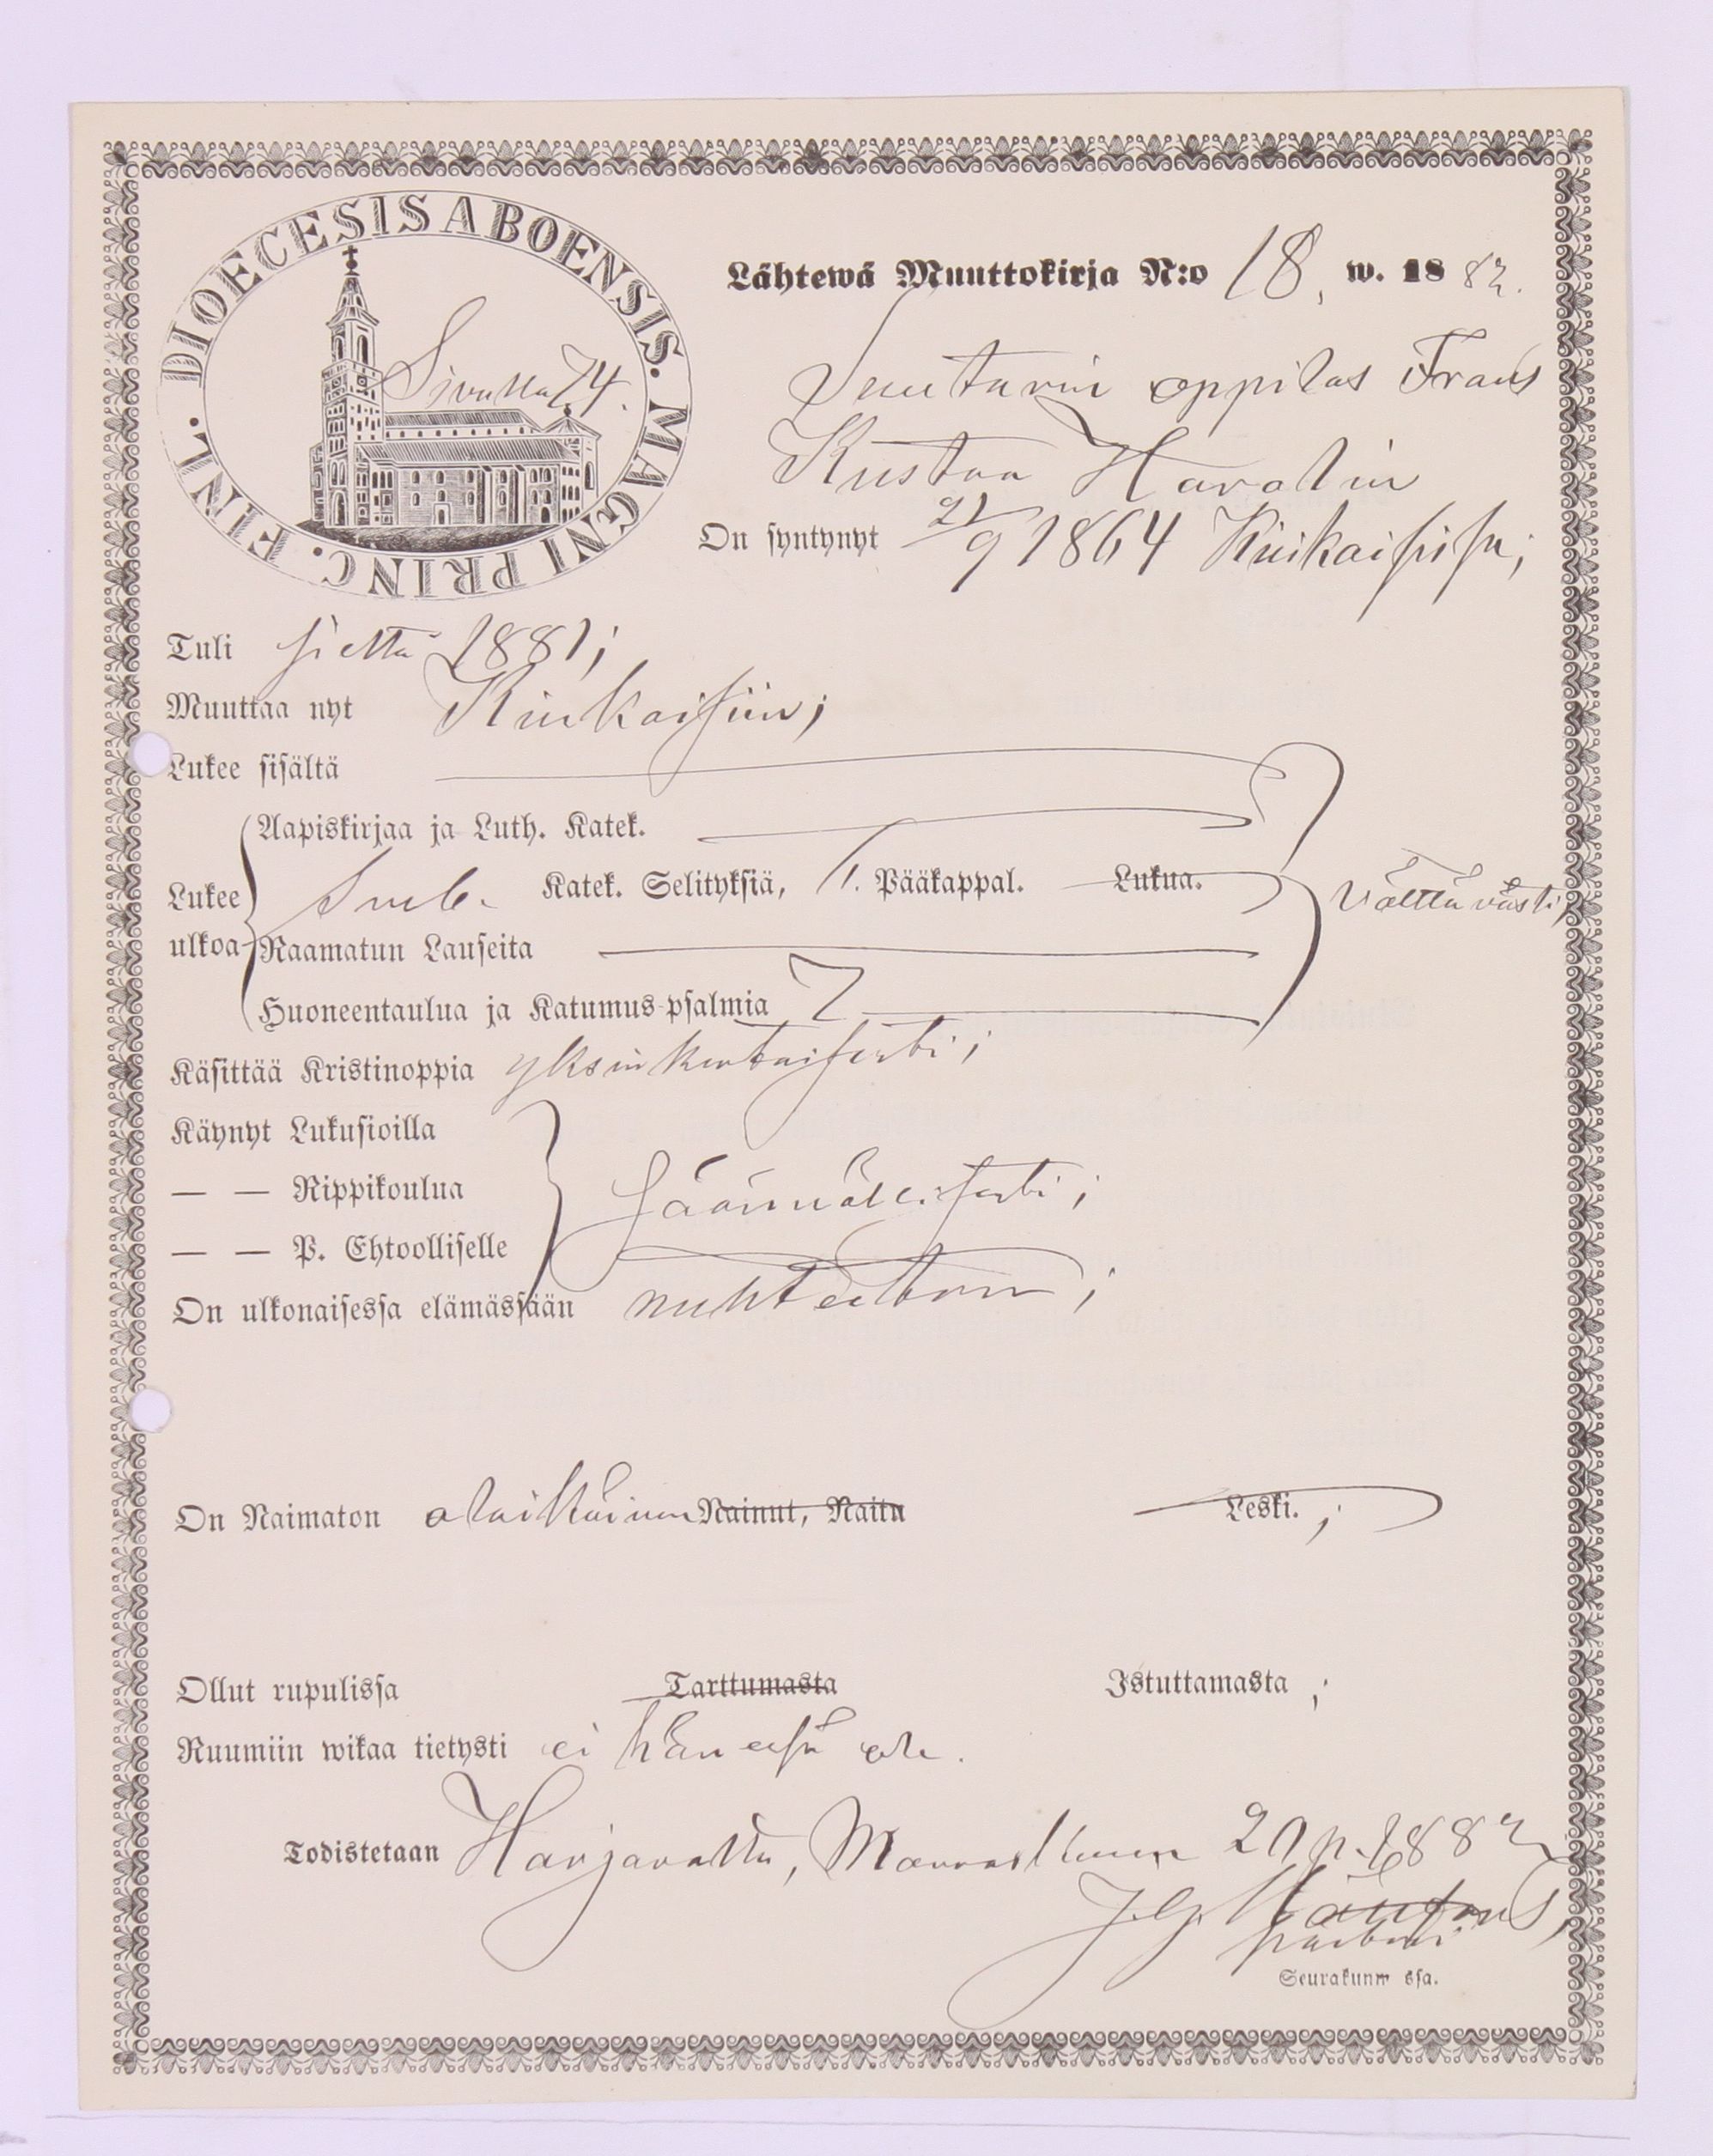 DIOECESIS ABOENSIS. MAGNI PRINC. FINL.
Sivulla 74.
Lähtewä Muuttokirja N:o 18, w. 1882.
Suutarin oppilas Frans
Kustaa
On syntynyt 21/9 1864 Kiukaisissa;
Tuli sieltä 1881;
Muuttaa nyt Kiukaisiin;
Lukee sisältä
Aapiskirjaa ja Luth. Katek.
Lukee ulkoa Katek. Selityksiä, Pääkappal. Lukua. Välttävästi,
Raamatun Lauseita
Huoneentaulua ja Katumus-psalmia 7
Käsittää Kristinoppia yksinkertaisesti;
Käynyt Lukusioilla
— — Rippikoulua säännöllisesti;
— — P. Ehtoolliselle
On ulkonaisessa elämässään nuhteeton;
On Naimaton alaikäinen Nainut, Naitu Leski.;
Ollut rupulissa Tarttumasta Istuttamasta;
Ruumiin wikaa tietysti ei hänessä ole.
Todistetaan Harjavalta, Marraskuun 21 p. 1882
J. G.
Seurakunnassa.